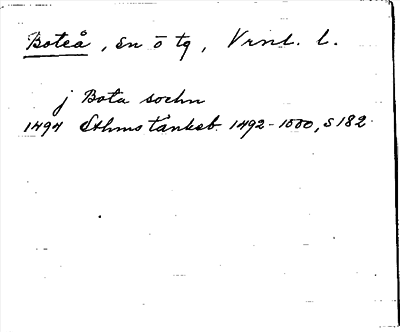 Boteå, sn o tg, Vrnl. l.
j Bota sochn
1494 Sthms tänkeb. 1492-1500, s 182.